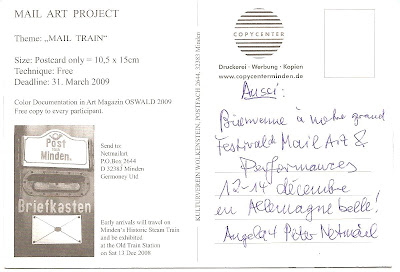 MAIL ART PROJECT
Theme: „MAIL TRAIN"
Size: Postcard only = 10,5 x 15cm
Technique: Free
Deadline: 31. March 2009
Color Documentation in Art Magazin OSWALD 2009
Free copy to every participant.
Post
Minden.
Briefkasten
Send to:
Netmailart
P.O.Box 2644
D 32383 Minden
Germoney Utd
Early arrivals will travel on
Minden's Historic Steam Train
and be exhibited
at the Old Train Station
on Sat 13 Dez 2008
KULTURVEREIN WOLKENSTEIN, POSTFACH 2644, 32383 Minden
COPYCENTER
Druckerei · Werbung · Kopien
www.copycenterminden.de
Aussi:
Bienvenue à notre grand
Festival de Mail Art &
Performances
12-14 décembre
en Allemagne belle!
Angela & Peter Netmail